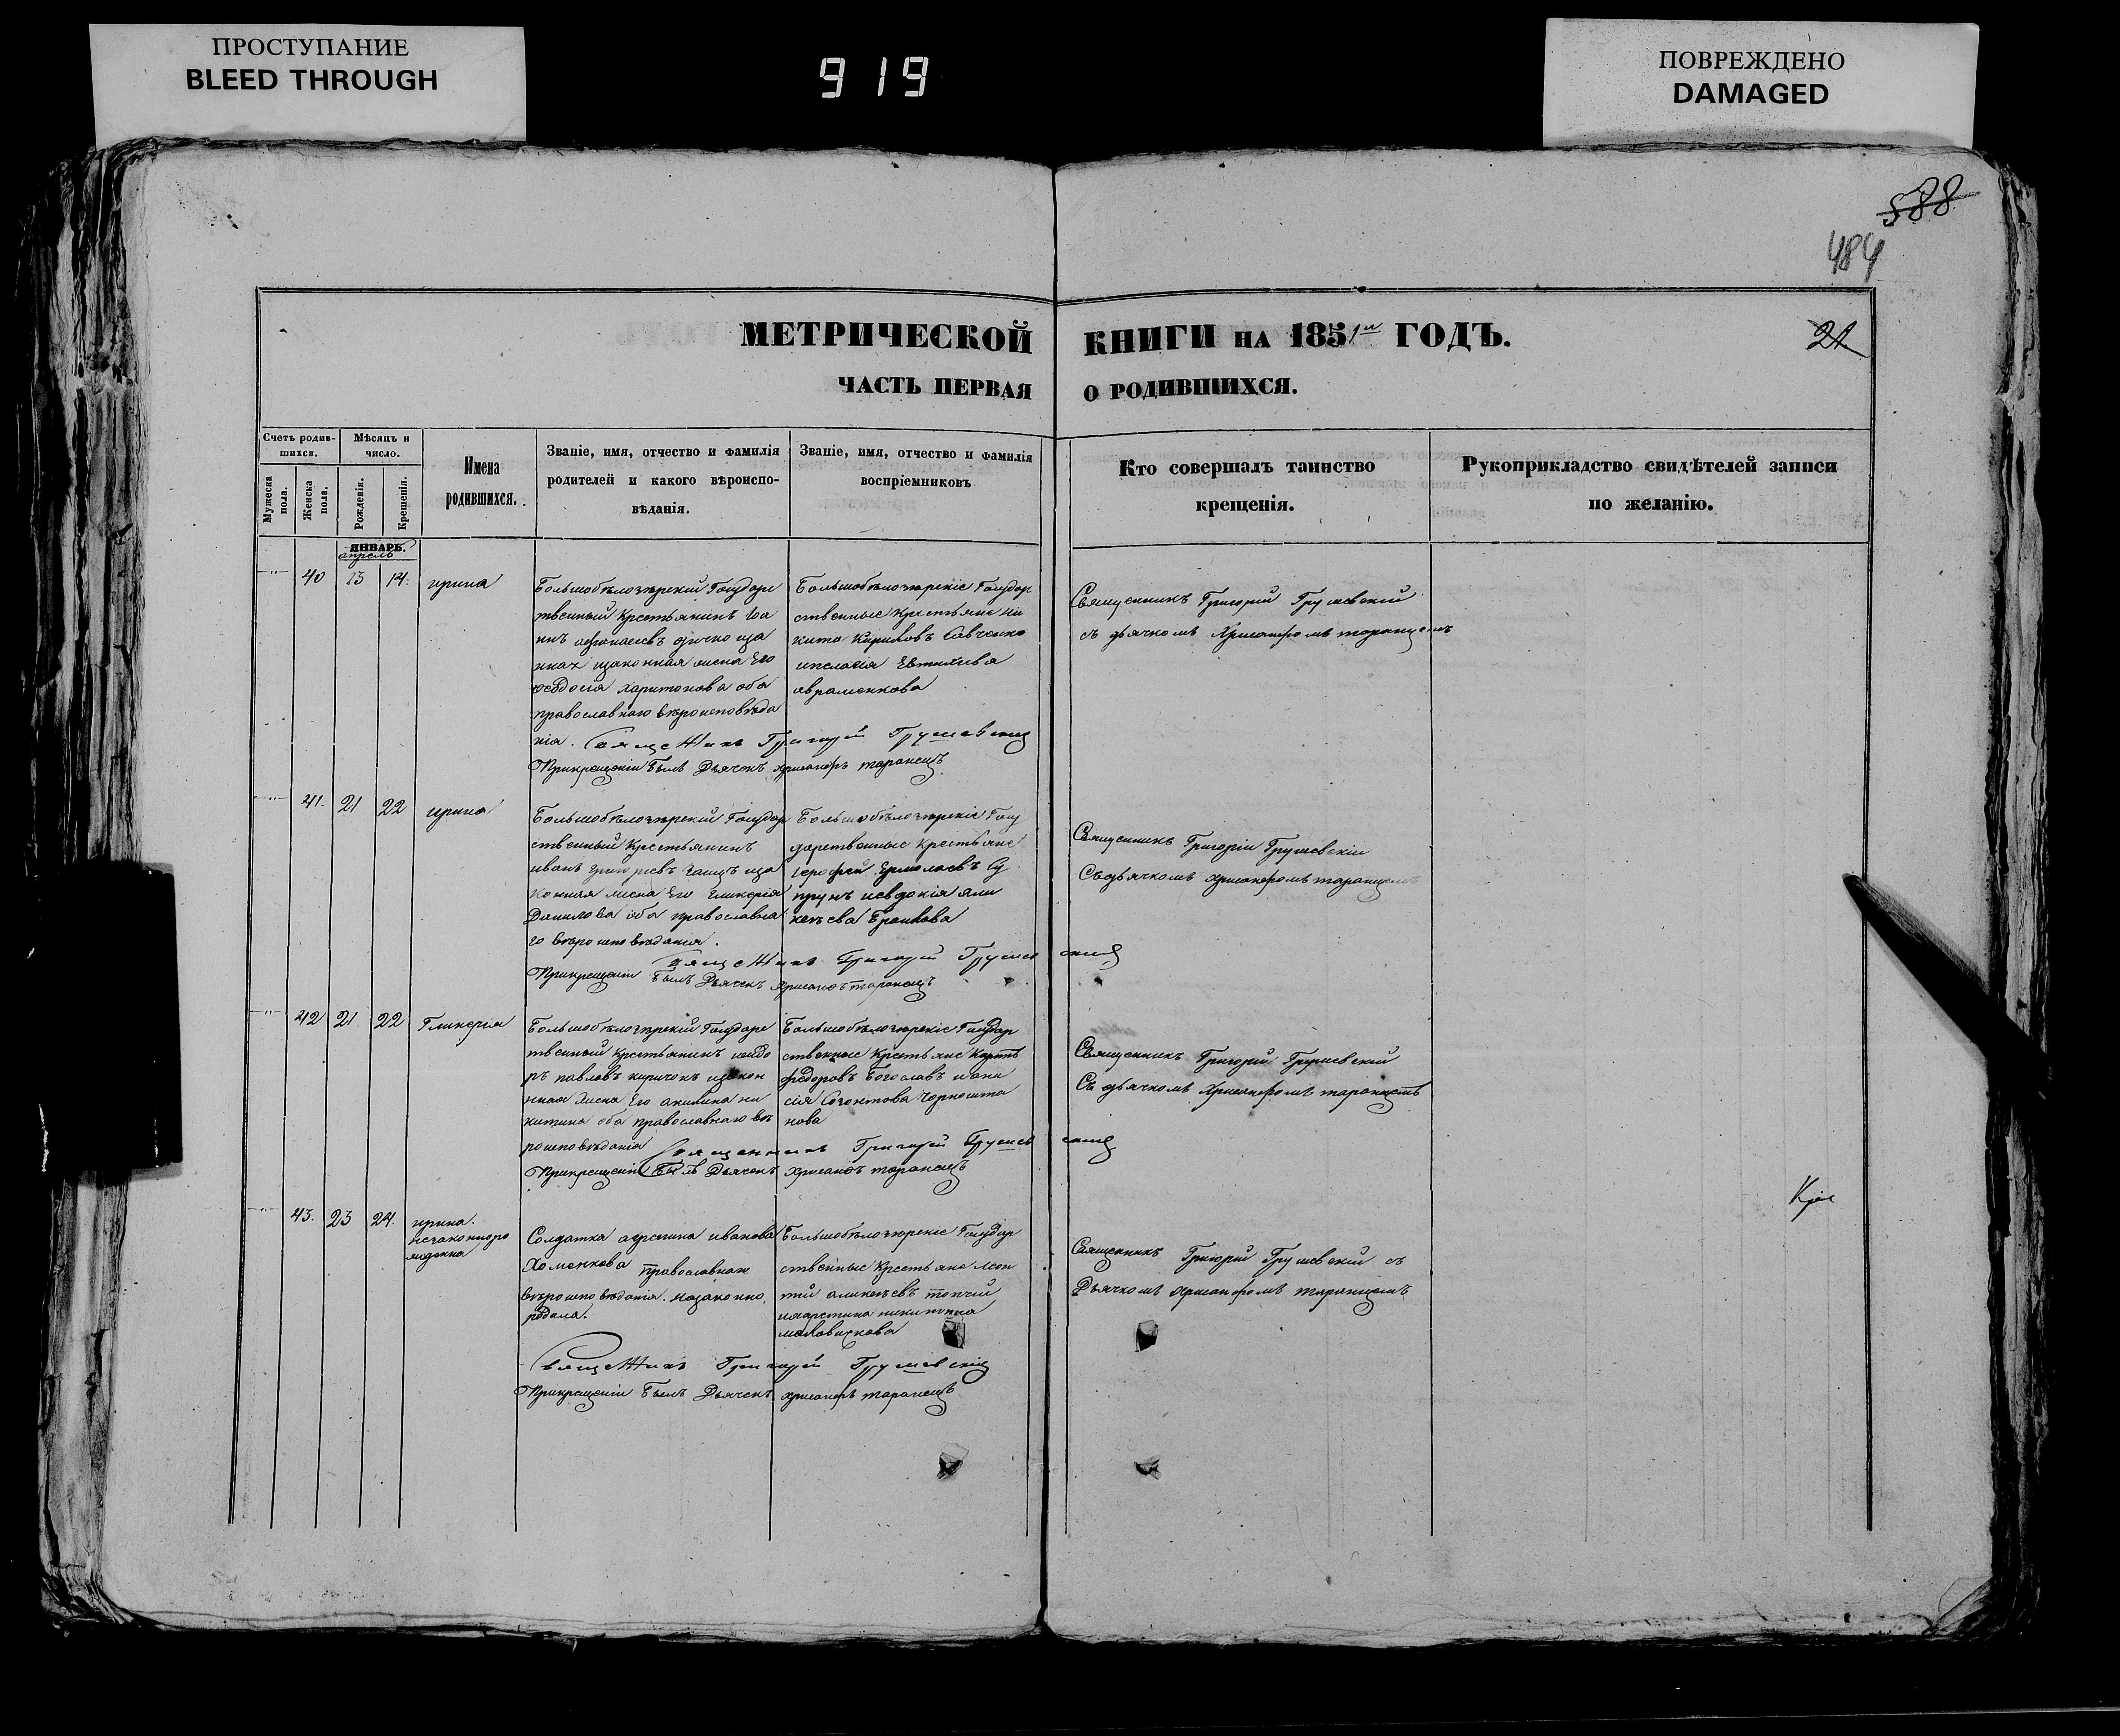 ПРОСТУПАНИЕ
BLEED THROUGH
919
ПОВРЕЖДЕНО
DAMAGED
588
484
МЕТРИЧЕСКОЙ КНИГИ НА 1851й ГОДЪ.
21
ЧАСТЬ ПЕРВАЯ О РОДИВШИХСЯ.
Счетъ родив-
шихся.
Мѣсяцъ и
число.
Мужеска
пола.
Женска
пола.
Рожденія.
Крещенія.
Имена
родившихся.
Званіе, имя, отчество и фамилія
родителей и какого вѣроиспо-
вѣданія.
Званіе, имя, отчество и фамилія
воспріемниковъ
Кто совершалъ таинство
крещенія.
Рукоприкладство свидѣтелей записи
по желанію.
ЯНВАРЬ.
апрель
40 13 14. ирина
Большобѣлозѣрскій Государс
твенный Крестьянинъ Іоа
ннъ афонасіевъ
изаконная жена Его
Ѳеодосія харитонова оба
православнаго вѣроисповѣда
нія. Священникъ Григорій Грушевскій
Прикрещеніи былъ Дьячекъ хрисанфъ таранецъ
Большобѣлозѣрскіе Государ
ственные Крестьяне Ни
кита Кириловъ Савченко
ипелагія Евтихіева
авраменкова
Священникъ Григорій Грушевскій
съ дьячкомъ Хрисанфомъ таранцемъ
41. 21 22 ирина
Большобѣлозѣрскій Государ
ственный Крестьянинъ
иванъ григоріевъ иза
конная жена Его гликерія
Данилова оба православна
го вѣроисповѣданія.
Священникъ Григорій Грушевскій
Прикрещеніи былъ Дьячекъ Хрисанфъ таранецъ
Большобѣлозѣрскіе Госу
дарственные Крестьяне
іерофей Ермолаевъ Су
прунъ иевдокія али
кѣева
Священникъ Григорій Грушевскій
Съ дьячкомъ хрисанфомъ таранцемъ
42 21 22 Гликерія
Большобѣлозѣрскій Государс
твенный Крестьянинъ исидо
ръ павловъ киричокъ изакон
ная жена Его акилина ни
китина оба православнаго вѣ
роисповѣданія Священникъ Григорій Грушевскій
Прикрещеніи былъ Дьячекъ Хрисанфъ таранецъ
Большобѣлозѣрскіе Государ
ственные Крестьяне
федоровъ Богославъ иани
сія Созонтова
нова
Священникъ Григорій Грушевскій
Съ дьячкомъ Хрисанфомъ таранцемъ
43. 23 24. ирина.
незаконноро
жденна
Солдатка агрепина иванова
Хоменкова православнаго
вѣроисповѣданія. незаконно
родила.
Большобѣлозѣрскіе Государ
ственные Крестьяне леон
тій аликѣевъ топчій
никитина
Священникъ Григорій Грушевскій съ
Дьячкомъ Хрисанфомъ таранцемъ
Священникъ Григорій Грушевскій
Прикрещеніи былъ Дьячекъ хрисанфъ таранецъ